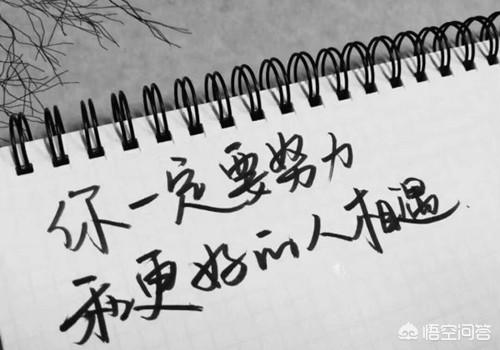 你一定要努力
和更好的人相遇.
悟空问答